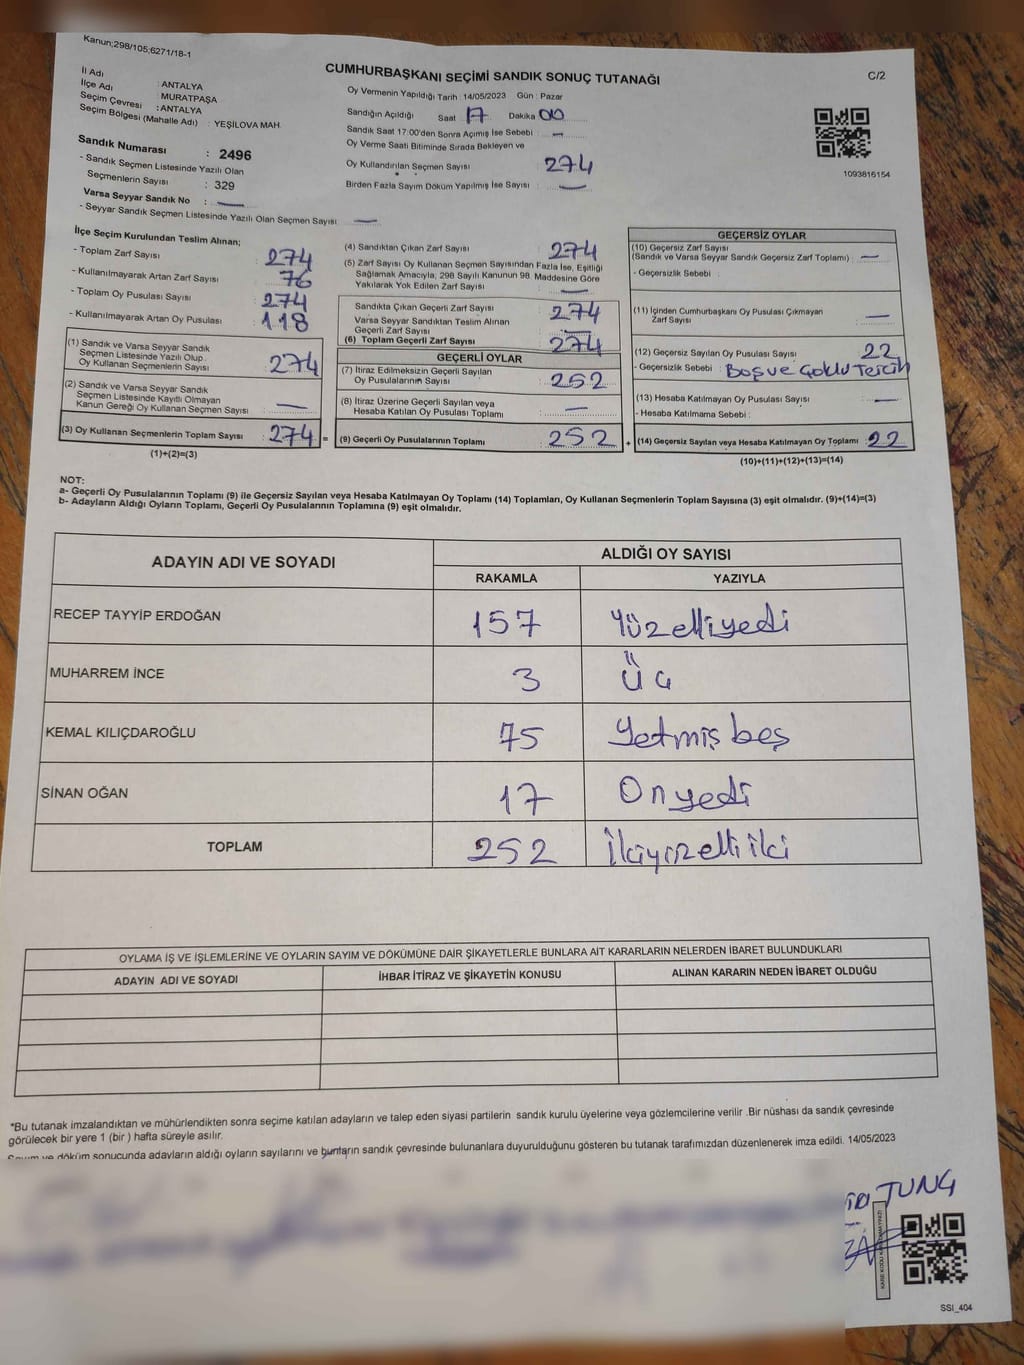 Kanun;298/105;6271/18-1
CUMHURBAŞKANI SEÇİMİ SANDIK SONUÇ TUTANAĞI
C/2
İl Adı : ANTALYA
İlçe Adı : MURATPAŞA
Seçim Çevresi : ANTALYA
Seçim Bölgesi (Mahalle Adı) : YEŞİLOVA MAH.
Sandık Numarası : 2496
- Sandık Seçmen Listesinde Yazılı Olan
Seçmenlerin Sayısı : 329
Varsa Seyyar Sandık No : —
- Seyyar Sandık Seçmen Listesinde Yazılı Olan Seçmen Sayısı : —
Oy Vermenin Yapıldığı Tarih : 14/05/2023 Gün : Pazar
Sandığın Açıldığı Saat 17 Dakika 00
Sandık Saat 17:00'den Sonra Açımış İse Sebebi : —
Oy Verme Saati Bitiminde Sırada Bekleyen ve
Oy Kullandırılan Seçmen Sayısı : 274
Birden Fazla Sayım Döküm Yapılmış İse Sayısı : —
1093816154
İlçe Seçim Kurulundan Teslim Alınan;
- Toplam Zarf Sayısı : 274
- Kullanılmayarak Artan Zarf Sayısı : 76
- Toplam Oy Pusulası Sayısı : 274
- Kullanılmayarak Artan Oy Pusulası : 118
(1) Sandık ve Varsa Seyyar Sandık
Seçmen Listesinde Yazılı Olup
Oy Kullanan Seçmenlerin Sayısı : 274
(2) Sandık ve Varsa Seyyar Sandık
Seçmen Listesinde Kayıtlı Olmayan
Kanun Gereği Oy Kullanan Seçmen Sayısı : —
(3) Oy Kullanan Seçmenlerin Toplam Sayısı : 274 =
(1)+(2)=(3)
(4) Sandıktan Çıkan Zarf Sayısı : 274
(5) Zarf Sayısı Oy Kullanan Seçmen Sayısından Fazla İse, Eşitliği
Sağlamak Amacıyla, 298 Sayılı Kanunun 98. Maddesine Göre
Yakılarak Yok Edilen Zarf Sayısı : —
Sandıkta Çıkan Geçerli Zarf Sayısı : 274
Varsa Seyyar Sandıktan Teslim Alınan
Geçerli Zarf Sayısı : —
(6) Toplam Geçerli Zarf Sayısı : 274
GEÇERLİ OYLAR
(7) İtiraz Edilmeksizin Geçerli Sayılan
Oy Pusulalarının Sayısı : 252
(8) İtiraz Üzerine Geçerli Sayılan veya
Hesaba Katılan Oy Pusulası Toplamı : —
(9) Geçerli Oy Pusulalarının Toplamı : 252 +
GEÇERSİZ OYLAR
(10) Geçersiz Zarf Sayısı
(Sandık ve Varsa Seyyar Sandık Geçersiz Zarf Toplamı) : —
- Geçersizlik Sebebi :
(11) İçinden Cumhurbaşkanı Oy Pusulası Çıkmayan
Zarf Sayısı : —
(12) Geçersiz Sayılan Oy Pusulası Sayısı : 22
- Geçersizlik Sebebi : Boş ve Çoklu Tercih
(13) Hesaba Katılmayan Oy Pusulası Sayısı : —
- Hesaba Katılmama Sebebi :
(14) Geçersiz Sayılan veya Hesaba Katılmayan Oy Toplamı : 22
(10)+(11)+(12)+(13)=(14)
NOT:
a- Geçerli Oy Pusulalarının Toplamı (9) ile Geçersiz Sayılan veya Hesaba Katılmayan Oy Toplamı (14) Toplamları, Oy Kullanan Seçmenlerin Toplam Sayısına (3) eşit olmalıdır. (9)+(14)=(3)
b- Adayların Aldığı Oyların Toplamı, Geçerli Oy Pusulalarının Toplamına (9) eşit olmalıdır.
ADAYIN ADI VE SOYADI
ALDIĞI OY SAYISI
RAKAMLA YAZIYLA
RECEP TAYYİP ERDOĞAN 157 Yüzelliyedi
MUHARREM İNCE 3 Üç
KEMAL KILIÇDAROĞLU 75 Yetmiş beş
SİNAN OĞAN 17 Onyedi
TOPLAM 252 İkiyüzelli iki
OYLAMA İŞ VE İŞLEMLERİNE VE OYLARIN SAYIM VE DÖKÜMÜNE DAİR ŞİKAYETLERLE BUNLARA AİT KARARLARIN NELERDEN İBARET BULUNDUKLARI
ADAYIN ADI VE SOYADI İHBAR İTİRAZ VE ŞİKAYETİN KONUSU ALINAN KARARIN NEDEN İBARET OLDUĞU
*Bu tutanak imzalandıktan ve mühürlendikten sonra seçime katılan adayların ve talep eden siyasi partilerin sandık kurulu üyelerine veya gözlemcilerine verilir .Bir nüshası da sandık çevresinde
görülecek bir yere 1 (bir ) hafta süreyle asılır.
Sayım ve döküm sonucunda adayların aldığı oyların sayılarını ve bunların sandık çevresinde bulunanlara duyurulduğunu gösteren bu tutanak tarafımızdan düzenlenerek imza edildi. 14/05/2023
TUNÇ
SSI_404